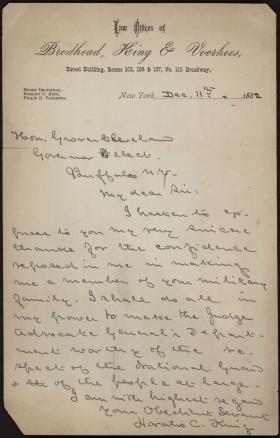 Law Offices of
Brodhead, King & Voorhees,
Boreel Building, Rooms 103, 105 & 107, No. 115 Broadway,
Henry Brodhead,
Horatio C. King,
Philip R. Voorhees.
New York, Dec. 11th 1882
Hon. Grover Cleveland
Governor Elect.
Buffalo N.Y.
My dear Sir:
I hasten to ex-
press to you my very sincere
thanks for the confidence
reposed in me in making
me a member of your military
family. I shall do all in
my power to make the Judge
Advocate General's Depart-
ment worthy of the re-
spect of the National Guard
& of the people at large.
I am with highest regard
Your Obedient Servant
Horatio C. King